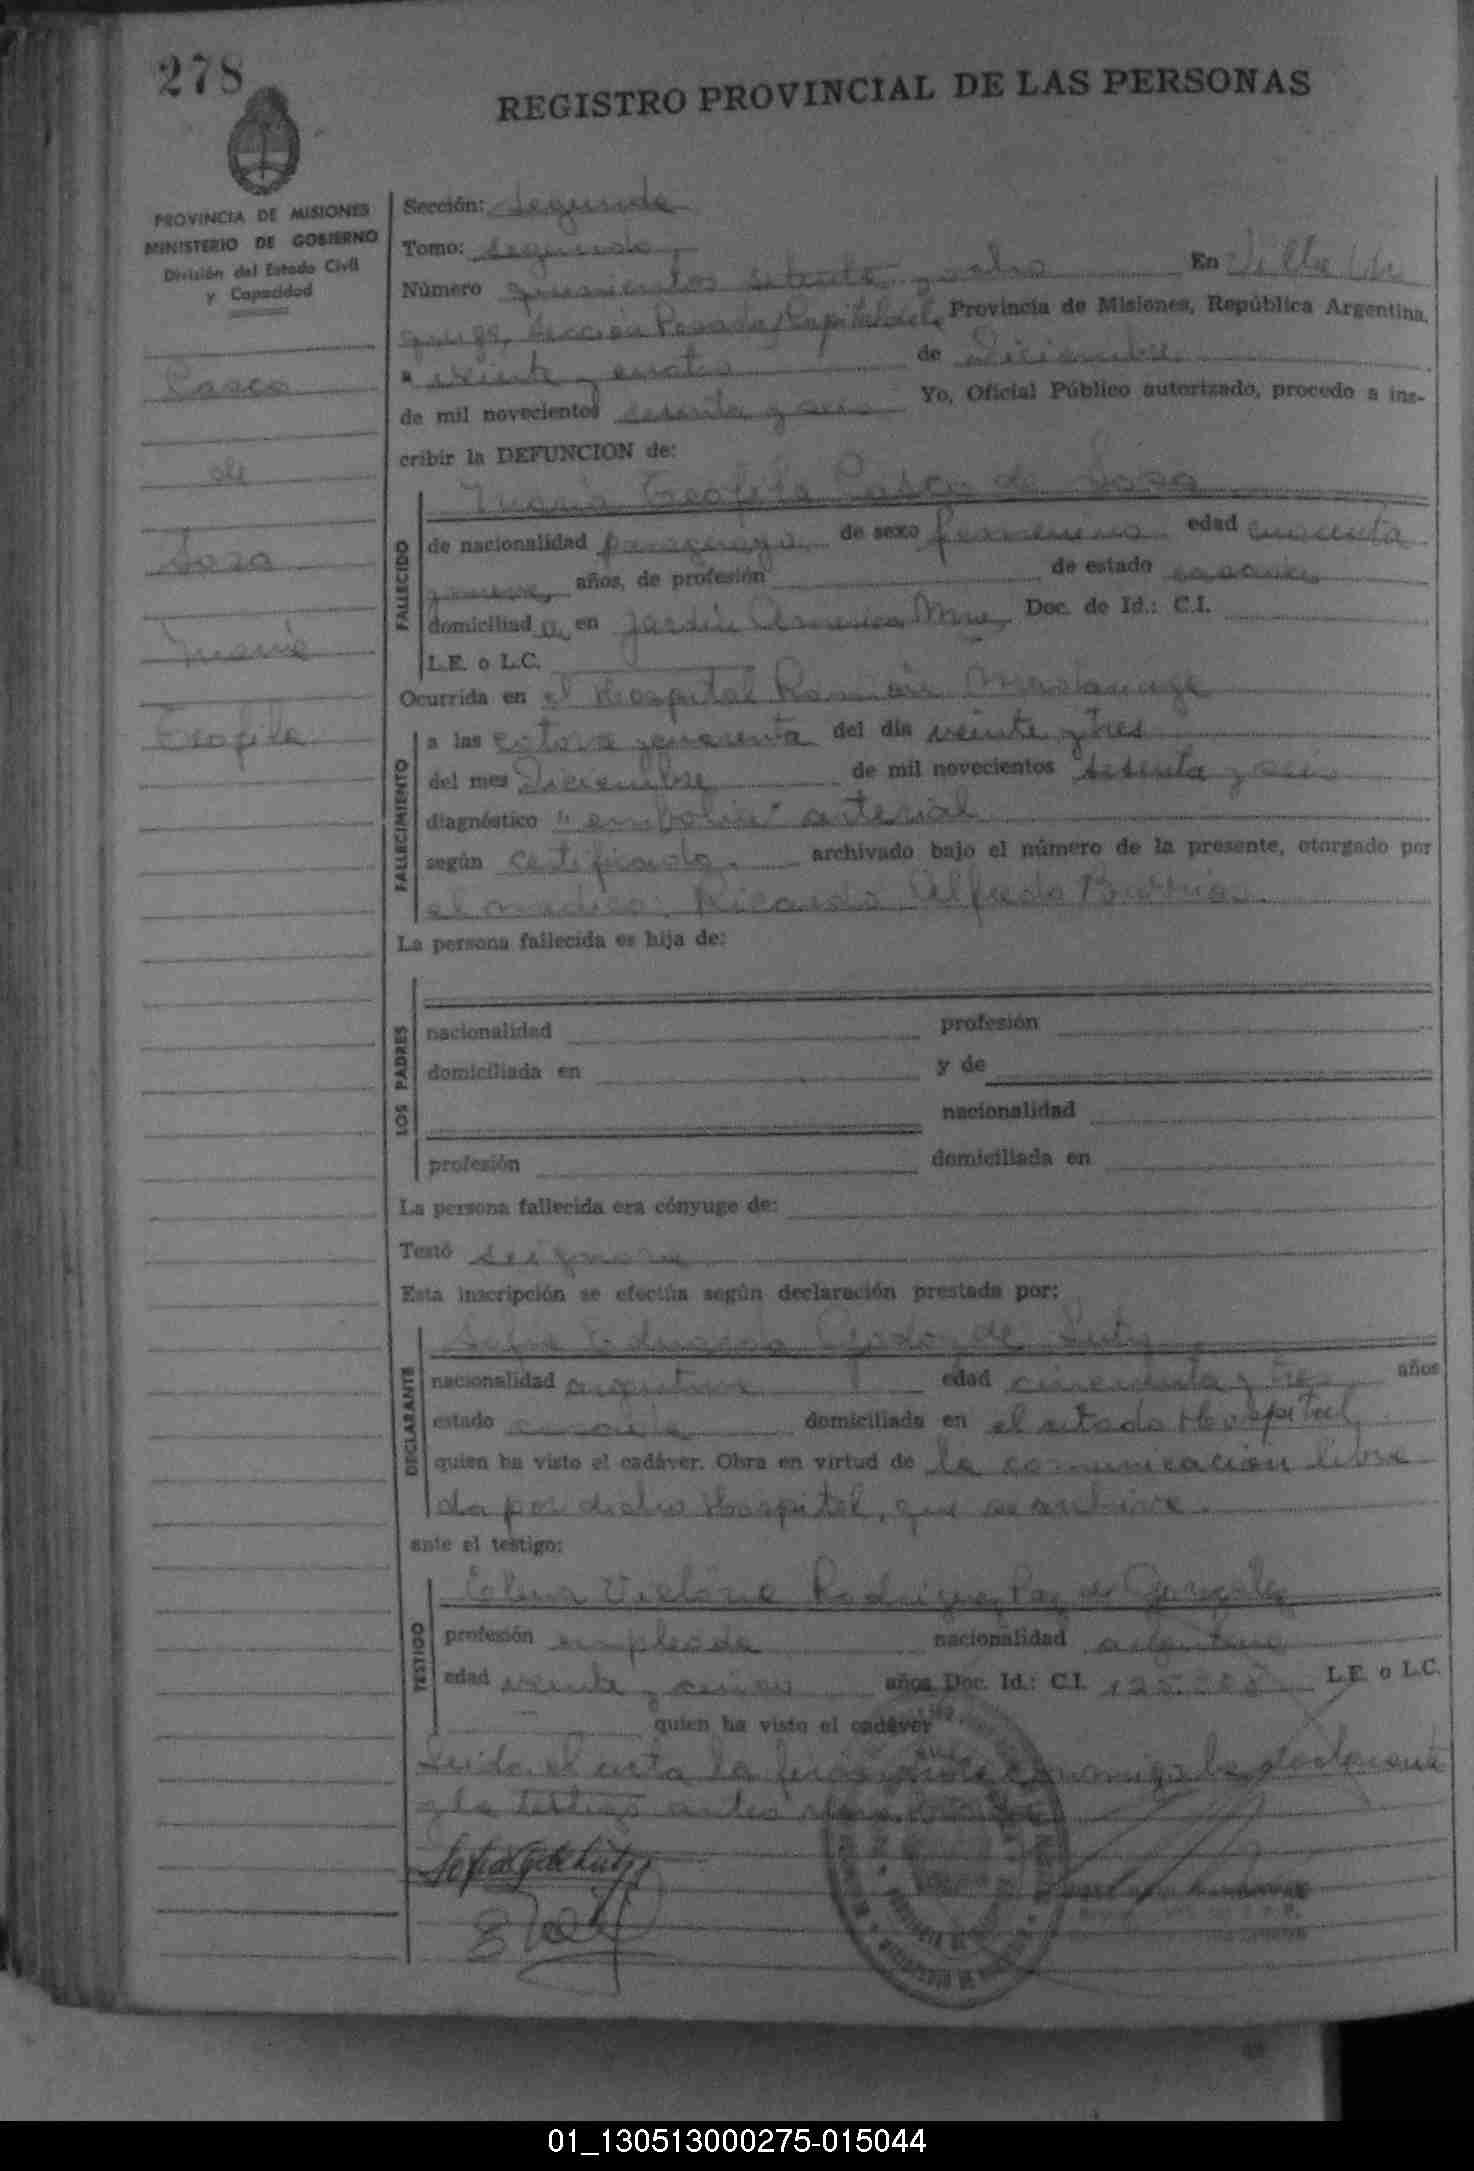 278
REGISTRO PROVINCIAL DE LAS PERSONAS
PROVINCIA DE MISIONES
MINISTERIO DE GOBIERNO
División del Estado Civil
y Capacidad
Casco
de
Sosa
María
Teofila
Sección: Segunda
Tomo: Segundo
Número setenta y ocho En Villa Ur
quiza, Sección Posadas, Capital de la Provincia de Misiones, República Argentina,
a veinte y cuatro de Diciembre
de mil novecientos sesenta y seis Yo, Oficial Público autorizado, procedo a ins-
cribir la DEFUNCION de:
María Teofila Casco de Sosa
FALLECIDO
de nacionalidad paraguaya de sexo femenino edad cuarenta
y nueve años, de profesión de estado
domiciliada en Jardín America Mnes Doc. de Id.: C.I.
L.E. o L.C.
Ocurrida en el Hospital Ramón Madariaga
FALLECIMIENTO
a las catorce y cuarenta del día veinte y tres
del mes Diciembre de mil novecientos sesenta y seis
diagnóstico "embolia" arterial
según certificado archivado bajo el número de la presente, otorgado por
el medico: Ricardo Alfredo Barrios.
La persona fallecida es hija de:
LOS PADRES
nacionalidad profesión
domiciliada en y de
nacionalidad
profesión domiciliada en
La persona fallecida era cónyuge de:
Testó se ignora
Esta inscripción se efectúa según declaración prestada por:
DECLARANTE
de Lutz
nacionalidad argentina edad cincuenta y tres años
estado casada domiciliada en el citado Hospital
quien ha visto el cadáver. Obra en virtud de la comunicación libra
da por dicho Hospital, que se archiva.
ante el testigo:
TESTIGO
Victoria Rodriguez Paz de Gonzalez
profesión empleada nacionalidad argentina
edad veinte y cinco años Doc. Id.: C.I. L.E. o L.C.
quien ha visto el cadáver
Leida el acta la firman conmigo la declarante
y la testigo antes